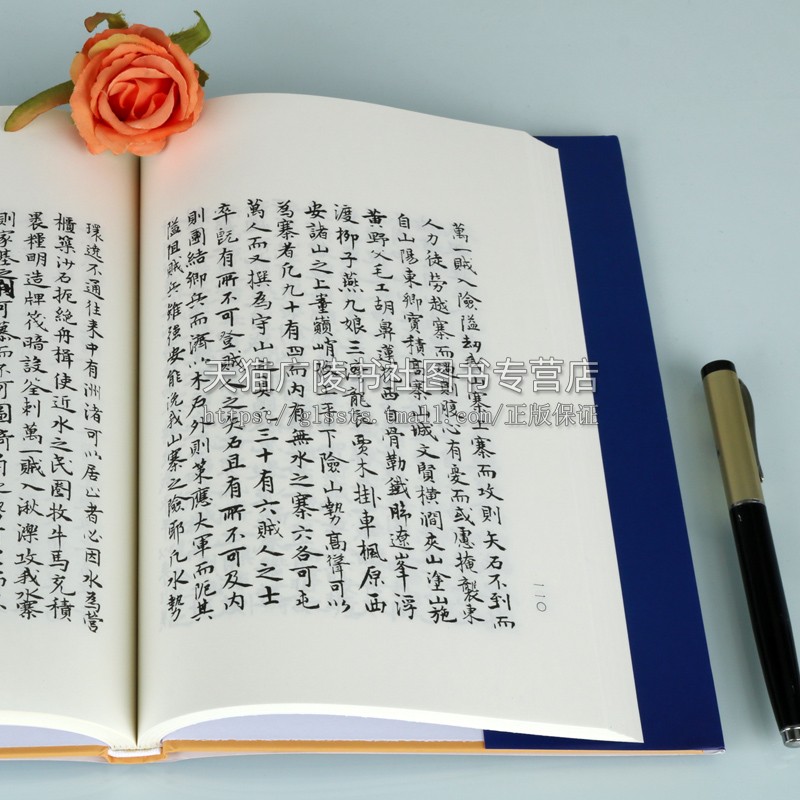 萬一賊入險隘劫我山寨寨而攻則矢石不到而
人力徒勞越寨而過則腹心有憂而或慮掩襲東
自山陽東鄉實積高寨山城文賢橫澗夾山塗山施
黃野父毛工胡鼻蓮 西自骨勒鐵歸遼峯浮
渡柳子燕九娘三 龍 賈木掛車楓原西
安諸山之上董巔峭 上平下險山勢高聳可以
為寨者凡九十有四而內有無水之寨六各可屯
萬人而又撰為守山 三十有六賊人之士
卒既有所不可登賊人之矢石且有所不可及內
則團結鄉兵而濟以木石外則策應大軍而阨其
隘阻賊兵雖强安能洗我山寨之險耶凡水勢
環遶不通往来中有洲渚可以居止者必因水為營
櫃築沙石扼絶舟楫使近水之民團牧牛馬充積
裹糧明造牌筏暗設釜剌萬一賊入湫濼攻我水寨
一一〇
天猫广陵书社图书专营店
https://glssts.tmall.com/正版保证